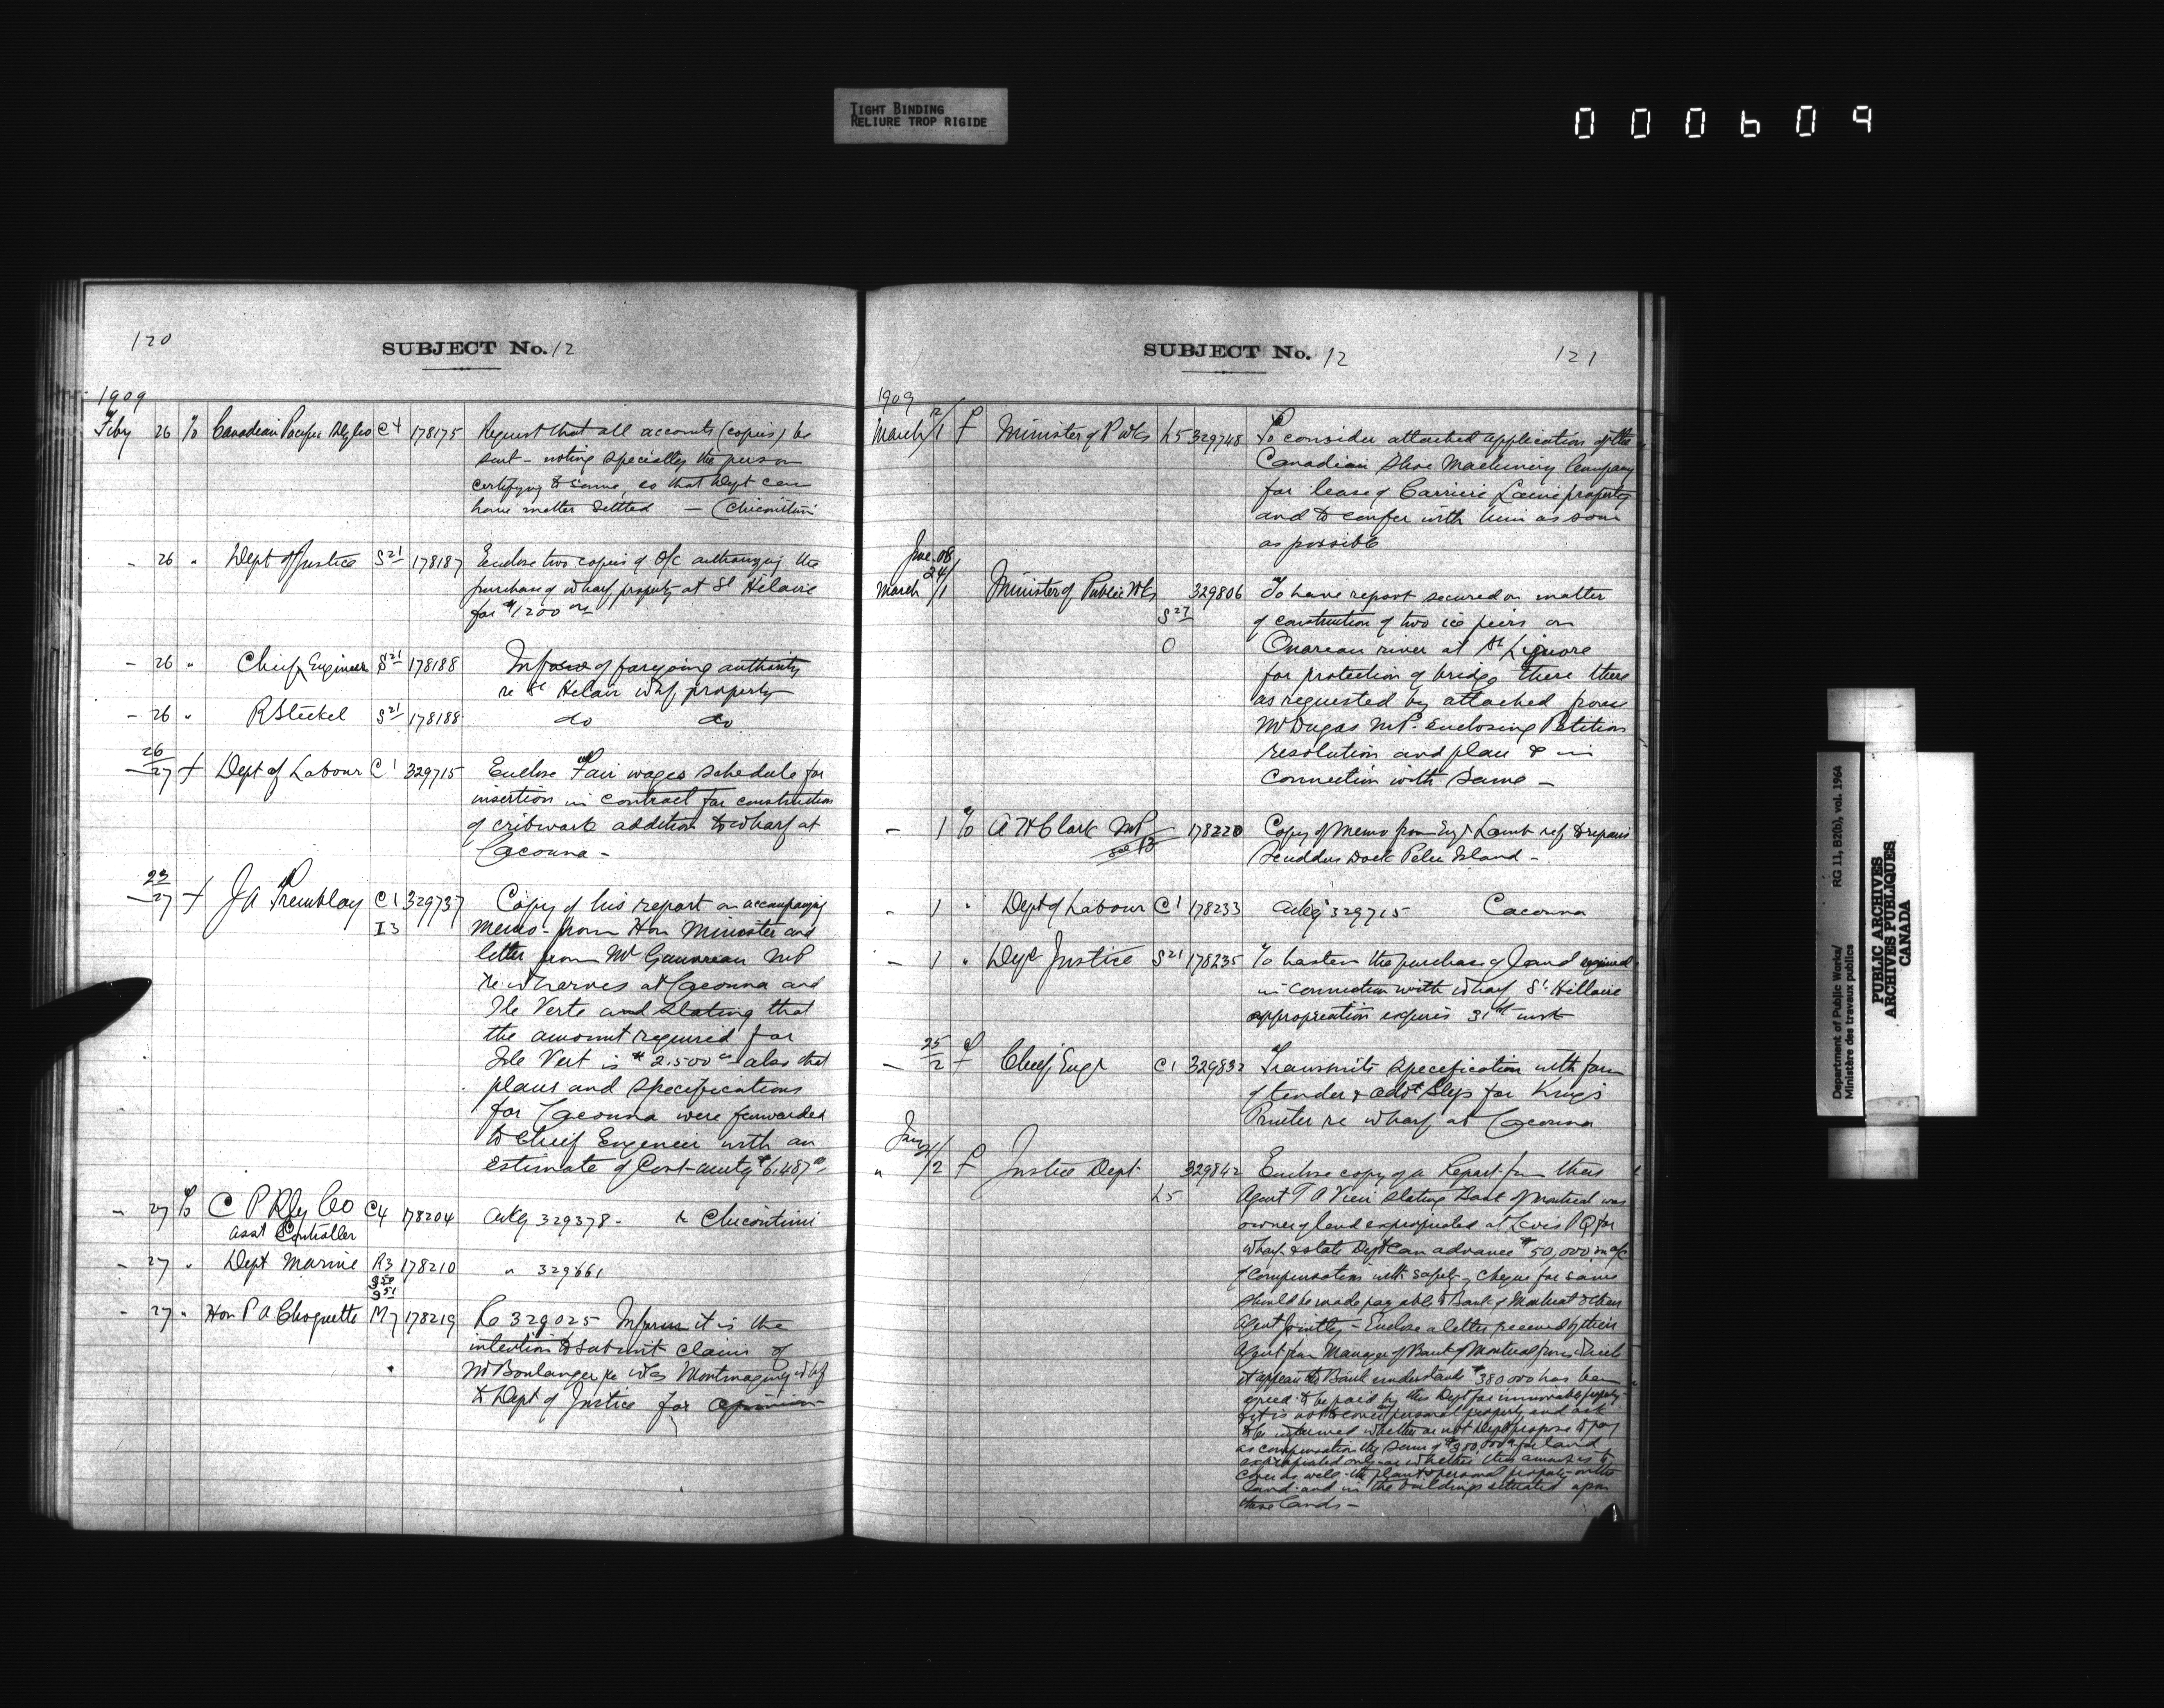 TIGHT BINDING
RELIURE TROP RIGIDE
000609
120
SUBJECT No. 12
1909
Feby 26 To Canadian Pacific Rly Co C4 178175 Request that all accounts (copies) be
sent - noting specially the person
certifying to same, so that Dept can
have matter settled - (Chicoutimi
- 26 " Dept of Justice S21 178187 Enclose two copies of O/c authorizing the
purchase of wharf property at St Hilaire
for $1200 00
- 26 " Chief Engineer S21 178188 Inform of foregoing authority
re St Helair whf property
- 26 " R Steckel S21 178188 do do
26
- 27 f Dept of Labour C1 329715 Enclose Fair wages schedule for
insertion in contract for construction
of cribwork addition to wharf at
Cacouna -
23
- 27 f J A Tremblay C1 329737 Copy of his report on accompanying
I3 memo from Hon Minister and
letter from Mr Gauvreau MP
re wharves at Cacouna and
Ile Verte and stating that
the amount required for
Isle Vert is $2.500 00 also that
plans and specifications
for Cacouna were forwarded
to Chief Engineer with an
estimate of Cost - amtg $6,487 00
- 27 To C P Rly Co C4 178204 Ackg 329378 - re Chicoutimi
asst Controller
- 27 " Dept Marine R3 178210 " 329661
950
951
- 27 " Hon P A Choquette M7 178219 Re 329025 Inform it is the
intention to submit claim of
Mr Boulanger re Montmagny whf
to Dept of Justice for opinion
SUBJECT No. 12
121
1909
12/
March /1 f Minister of P Wks L5 329748 To consider attached application of the
Canadian Shoe Machinery Company
for lease of Carriere Laine property
and to confer with him as soon
as possible
June 08
24/
March /1 Minister of Public Wks 329806 To have report secured on matter
S27 of construction of two ice piers on
O Ouareau river at St Liguore
for protection of bridge there there
as requested by attached from
Mr Dugas M.P. enclosing Petition
resolution and plan & in
connection with same -
- 1 To A H Clark MP 178220 Copy of Memo from Engr Lamb ref to repairs
see 13 Scudder Dock Pelee Island -
- 1 " Dept of Labour C1 178233 Ackg 329715 Cacouna
- 1 " Dept Justice S21 178235 To hasten the purchase of land required
in connection with wharf St Hillaire
appropriation expires 31st inst
25
- 2 f Chief Engr C1 329832 Transmits specification with form
of tender & advt slips for King's
Printer re wharf at Cacouna
Jany
21/
" /2 f Justice Dept 329842 Enclose copy of a Report from their
L5 Agent T A Vien stating Bank of Montreal was
owner of land expropriated at Levis P Q for
wharf & state Dept can advance $50,000 on a/c
of compensation with safety, cheque for same
should be made payable to Bank of Montreal & their
Agent jointly - Enclose a letter received by their
Agent from Manager of Bank of Montreal from which
it appears the Bank understands $380000 has been
agreed to be paid by this Dept for immovable property
& it is not to cover personal property and ask
to be informed whether or not Dept propose to pay
as compensation the sum of for land
expropriated only or whether this amount is to
cover as well the plant & personal property on the
land and in the buildings situated upon
these lands -
Department of Public Works/
Ministère des travaux publics
RG 11, B2(b), vol. 1964
PUBLIC ARCHIVES
ARCHIVES PUBLIQUES
CANADA